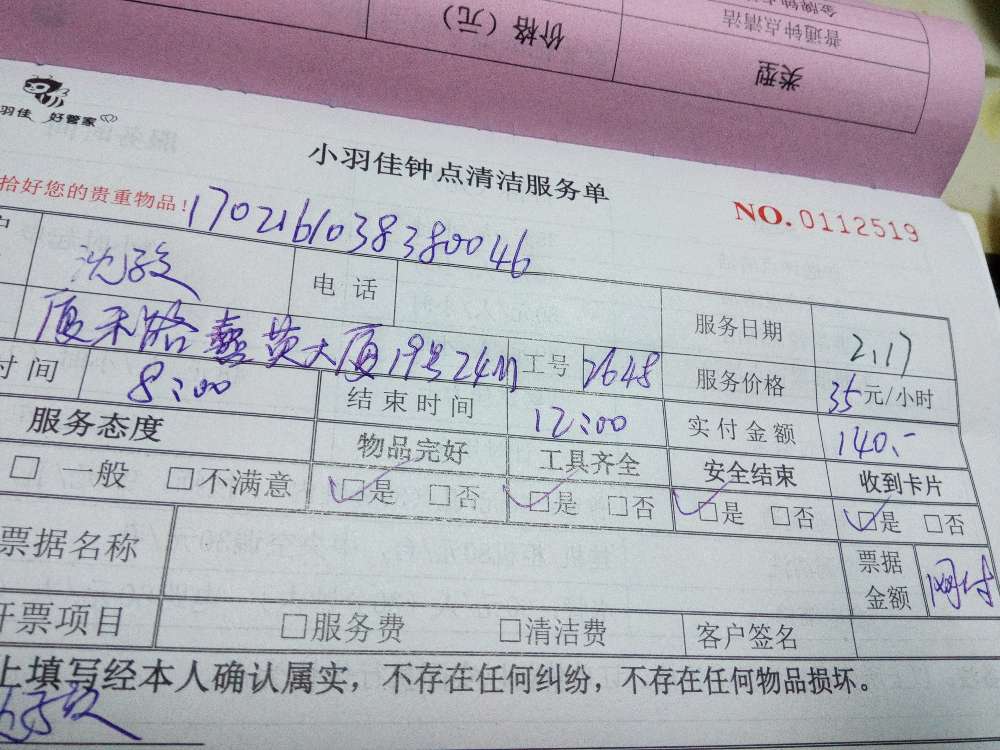 价格（元）
类型
普通钟点清洁
金牌钟点
羽佳 好管家
小羽佳钟点清洁服务单
拾好您的贵重物品！
NO. 0112519
1702161038380046
户 沈 电话 服务日期 2.17
厦禾路 英大厦19号24 工号 2648 服务价格 35元/小时
时间 8:00 结束时间 12:00 实付金额 140.-
服务态度 物品完好 工具齐全 安全结束 收到卡片
□一般 □不满意 □是 □否 □是 □否 □是 □否 □是 □否
票据名称 票据金额 网付
开票项目 □服务费 □清洁费 客户签名
上填写经本人确认属实，不存在任何纠纷，不存在任何物品损坏。